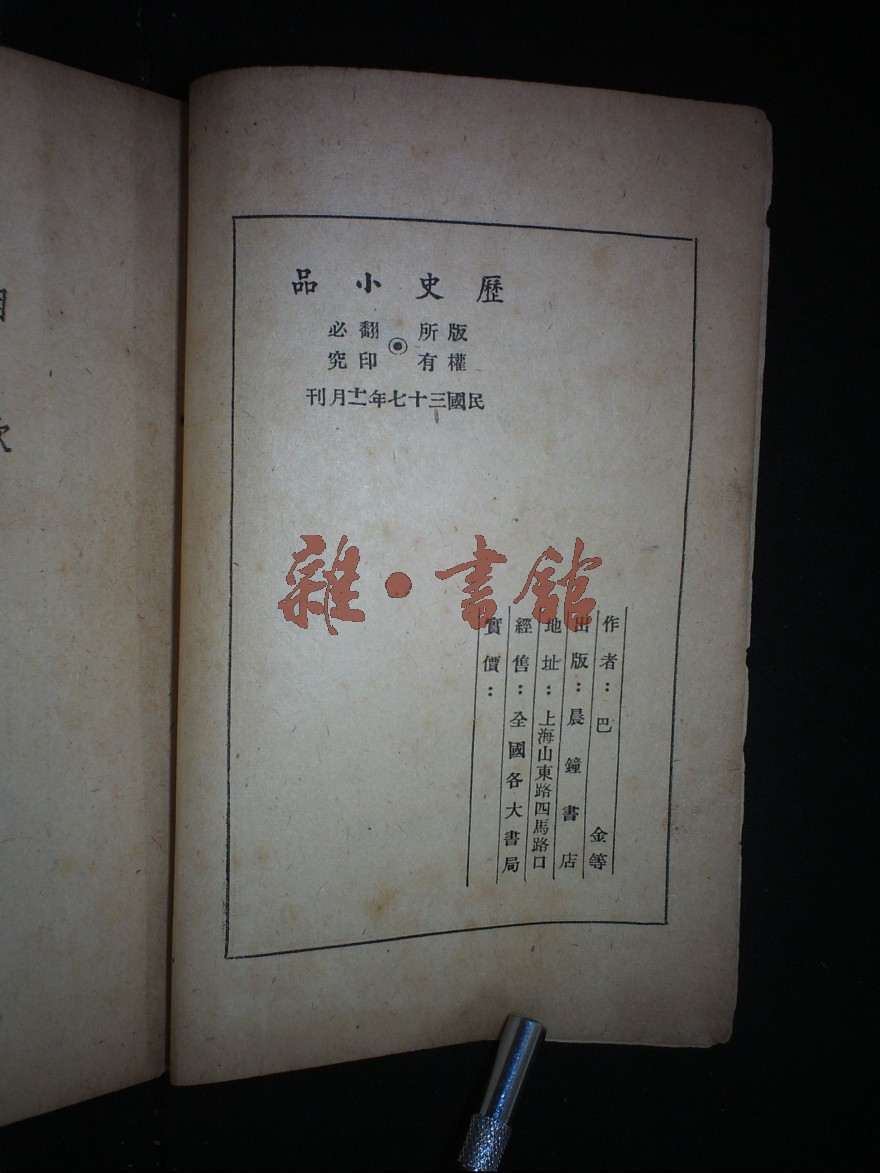 歷史小品
版權所有◉翻印必究
民國三十七年十一月刊
雜•書館
作者：巴金等
出版：晨鐘書店
地址：上海山東路四馬路口
經售：全國各大書局
實價：